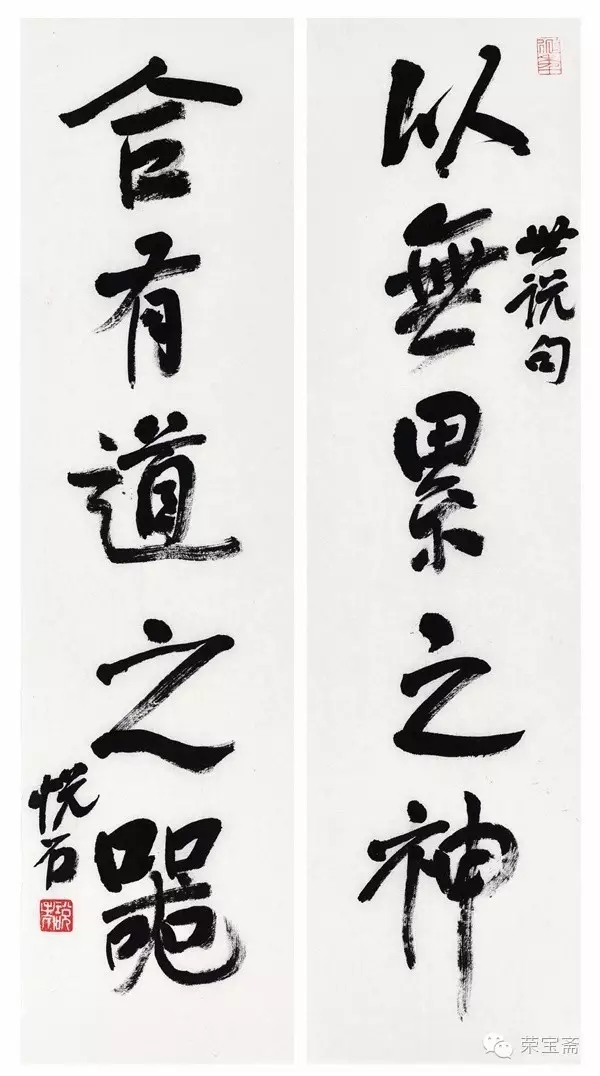 以無累之神
世说句
合有道之器
悦石
荣宝斋